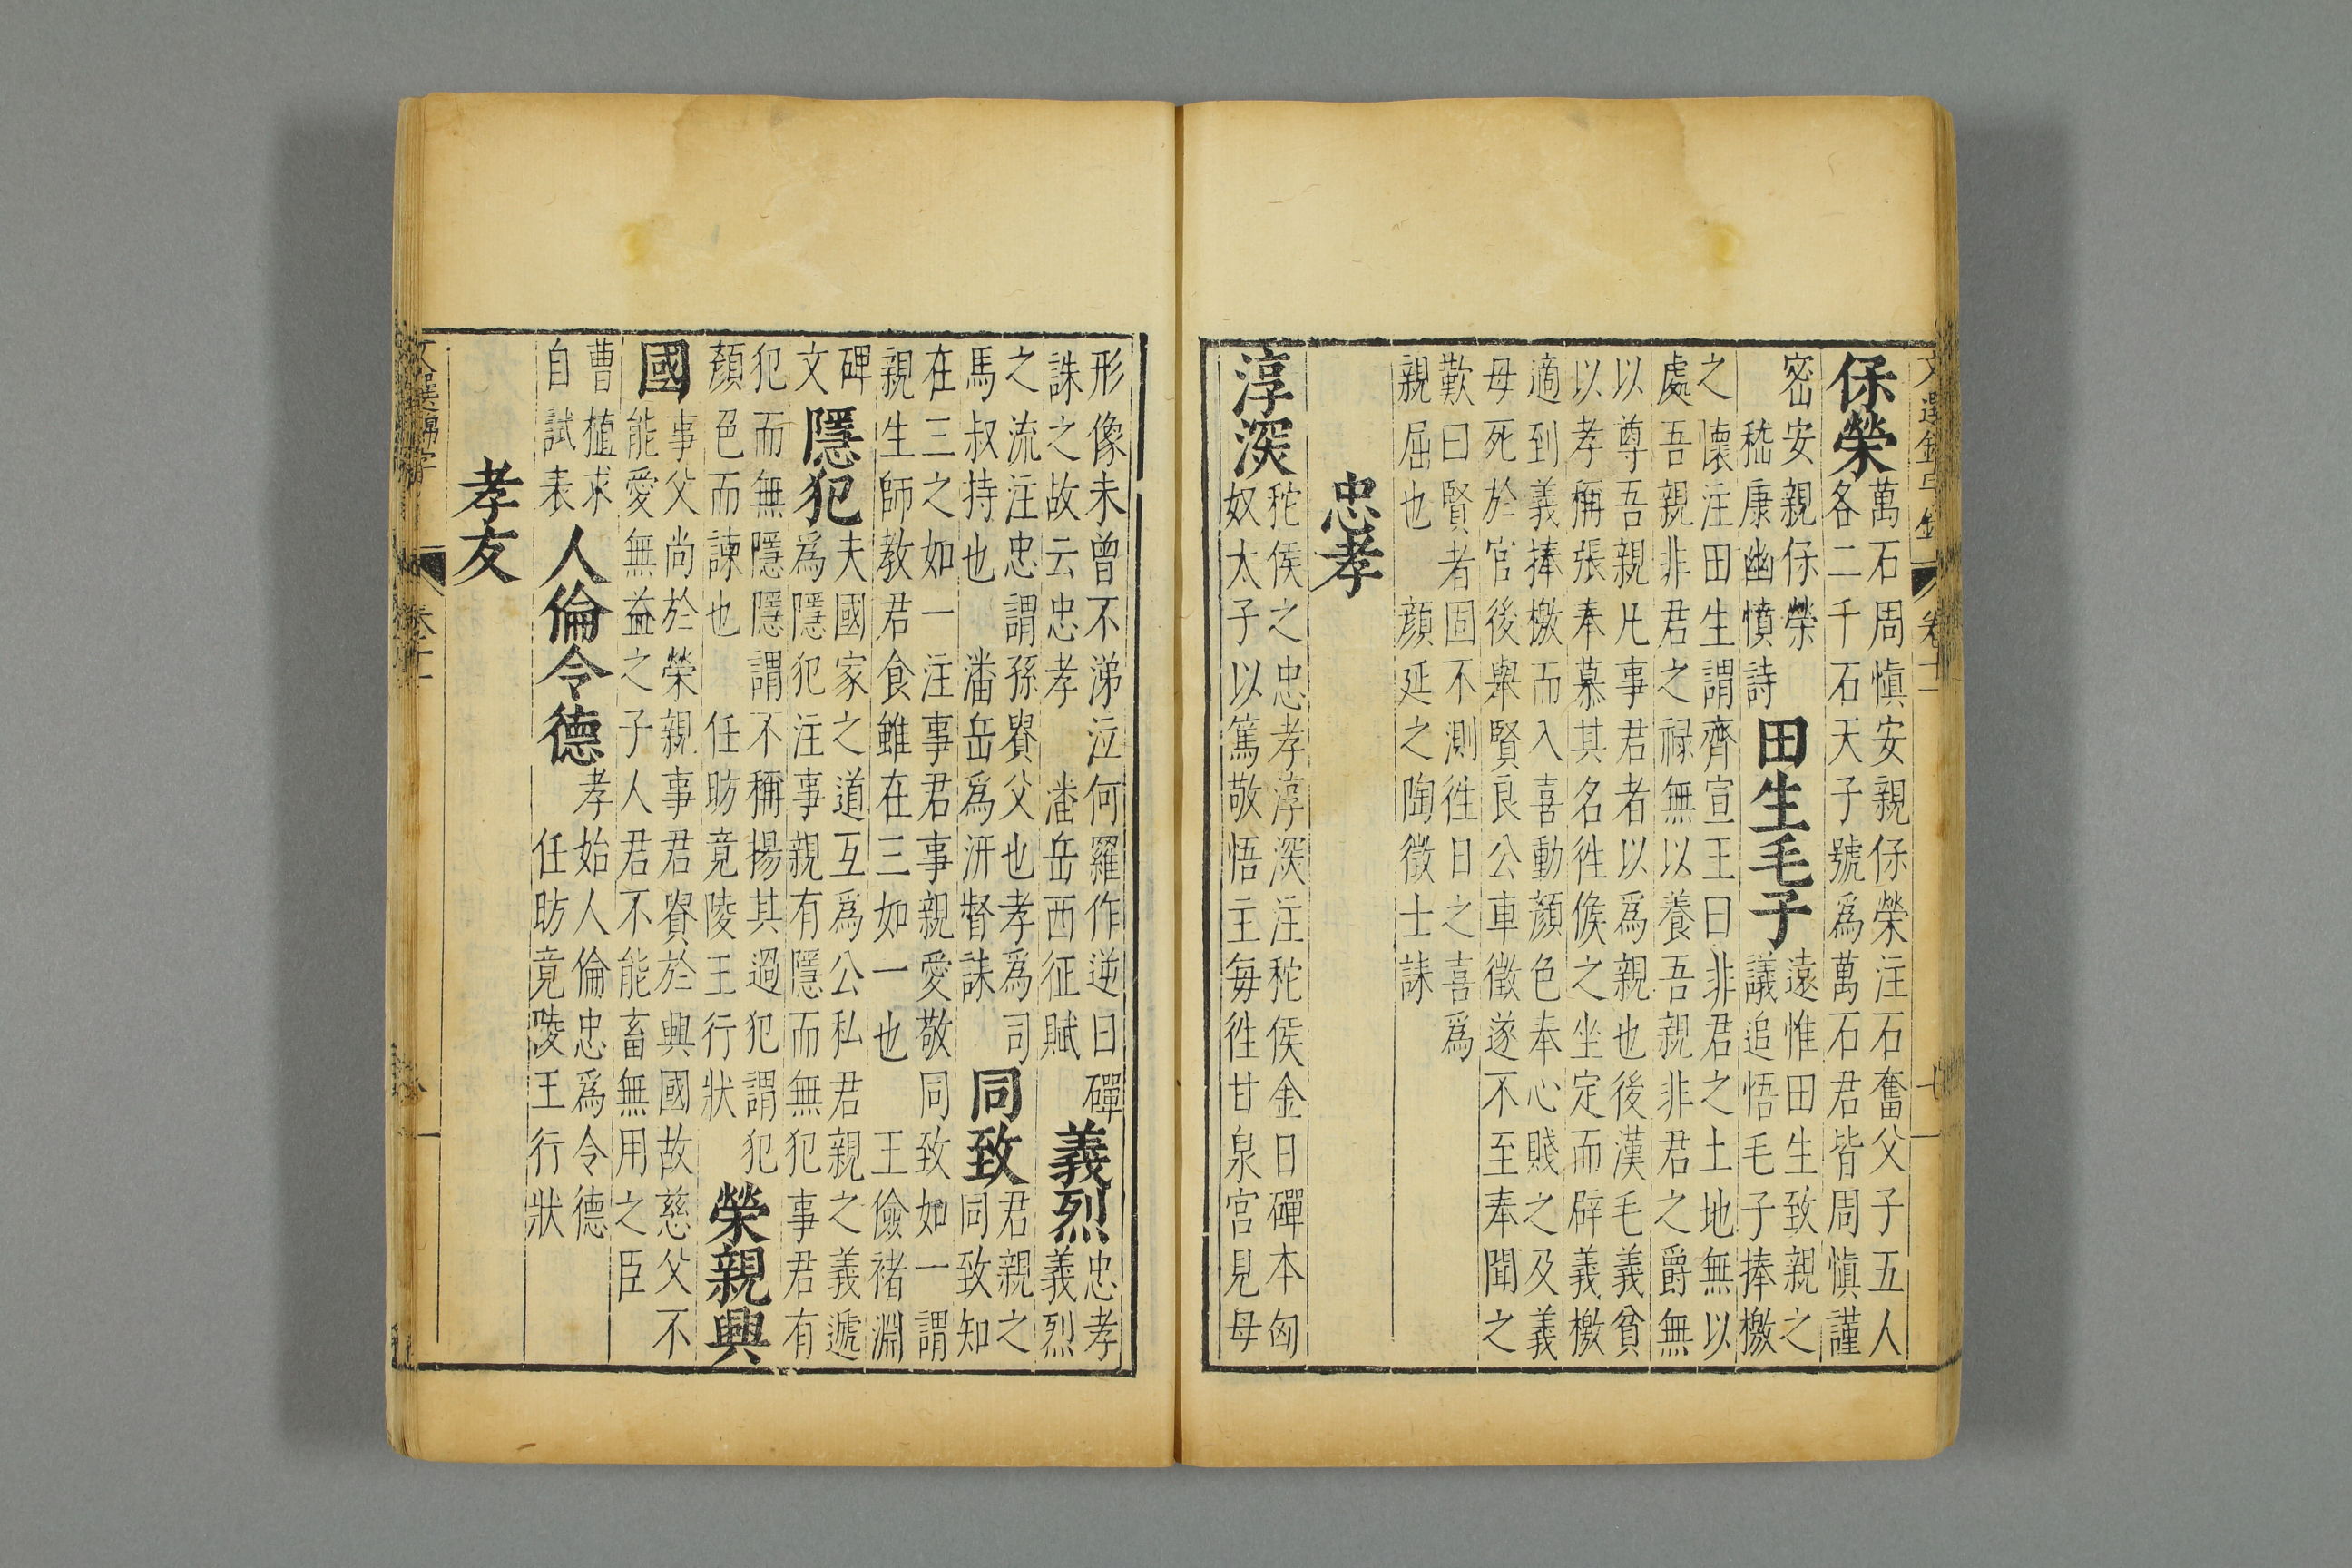 保榮
萬石周慎安親保榮注石奮父子五人
各二千石天子號為萬石君皆周慎謹
密安親保榮
嵇康幽憤詩
田生毛子
遠惟田生致親之
議追悟毛子捧檄
之懷注田生謂齊宣王曰非君之土地無以
處吾親非君之祿無以養吾親非君之爵無
以尊吾親凡事君者以為親也後漢毛義貧
以孝稱張奉慕其名往候之坐定而辟義檄
適到義捧檄而入喜動顏色奉心賤之及義
母死於官後舉賢良公車徵遂不至奉聞之
歎曰賢者固不測往日之喜為
親屈也 顏延之陶徵士誄
忠孝
淳深
秺侯之忠孝淳深注秺侯金日磾本匈
奴太子以篤敬悟主每往甘泉宮見母
形像未曾不涕泣何羅作逆日磾
誅之故云忠孝 潘岳西征賦
義烈
忠孝
義烈
之流注忠謂孫賁父也孝為司
馬叔持也 潘岳為汧督誄
同致
君親之
同致知
在三之如一注事君事親愛敬同致如一謂
親生師教君食雖在三如一也 王儉褚淵
碑
文
隱犯
夫國家之道互為公私君親之義遞
為隱犯注事親有隱而無犯事君有
犯而無隱隱謂不稱揚其過犯謂犯
顏色而諫也 任昉竟陵王行狀
榮親興
國
事父尚於榮親事君貴於興國故慈父不
能愛無益之子人君不能畜無用之臣
曹植求
自試表
人倫令德
孝始人倫忠為令德
任昉竟陵王行狀
孝友